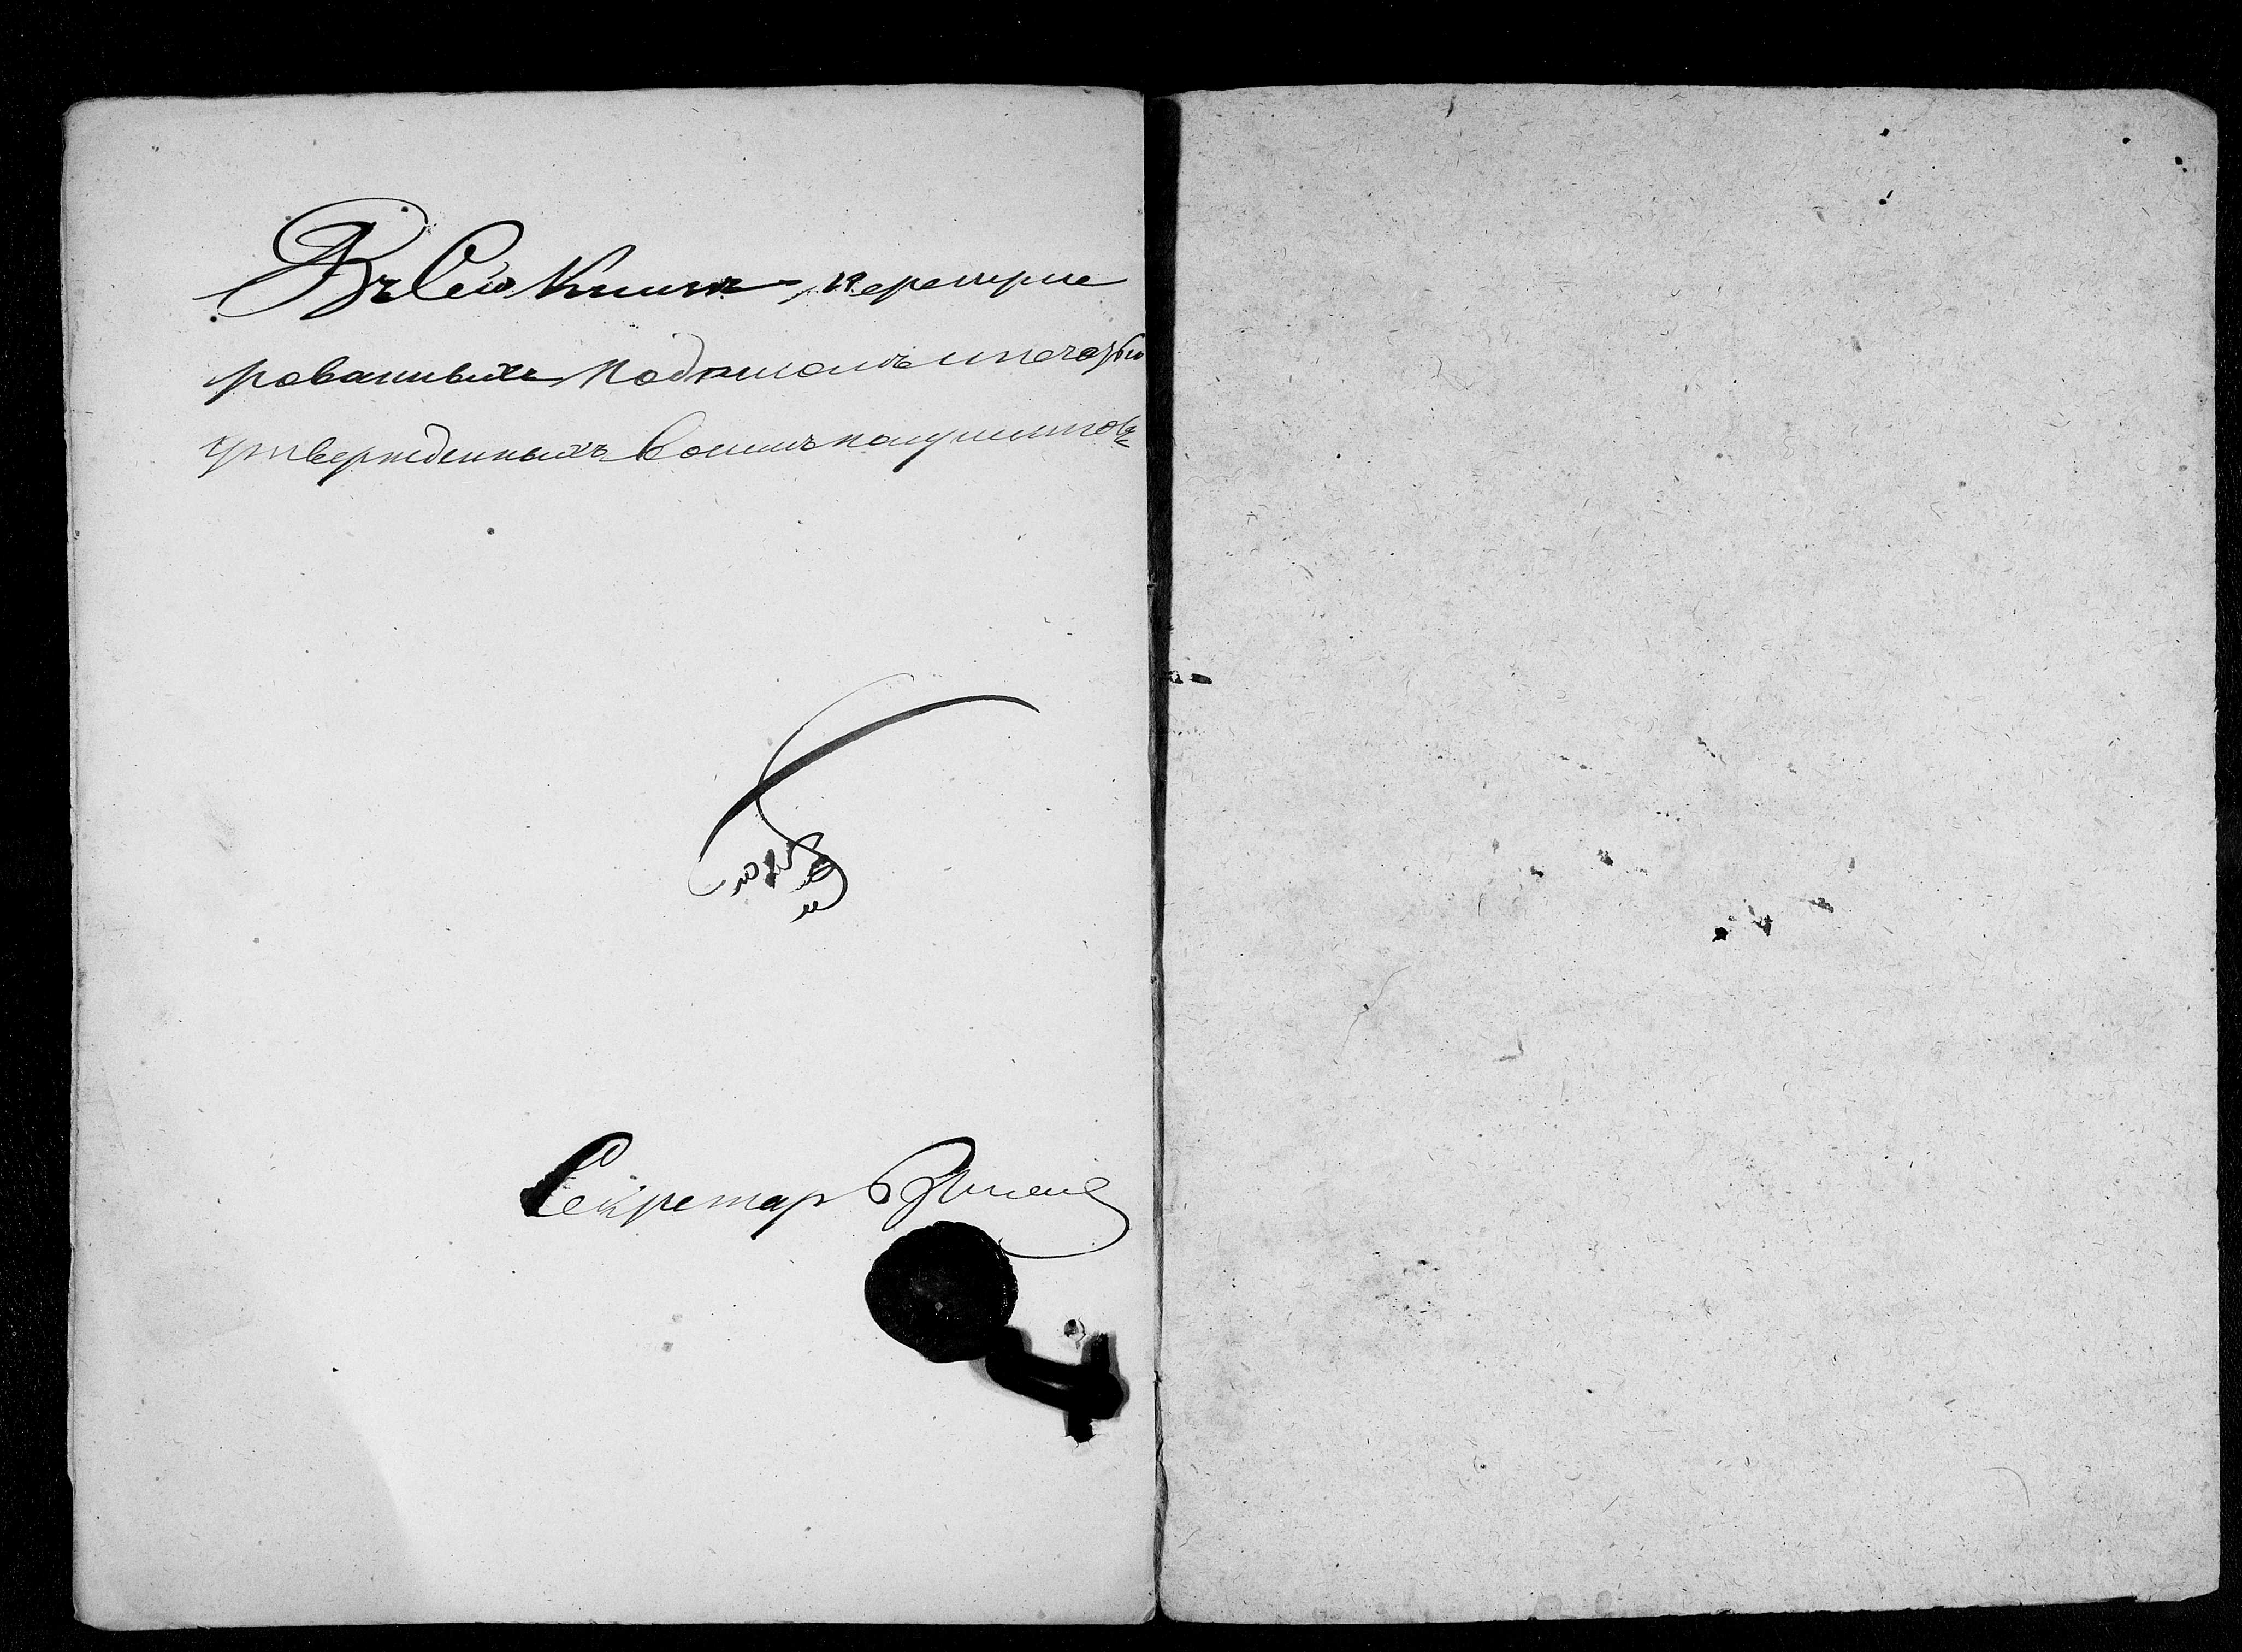 Въ Сей Книгѣ, перенуме
рованныхъ подписомъ и печатью
утвержденныхъ восемь полулистовъ
Секретарь